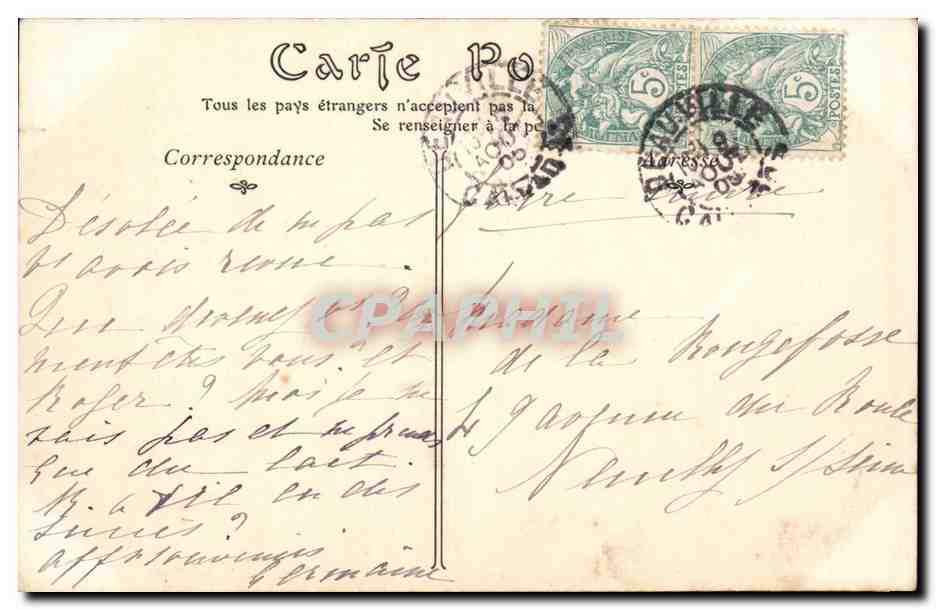 Carte Po
Tous les pays étrangers n'acceptent pas la
Se renseigner à la po
Correspondance
Adresse
5c
POSTES
5c
POSTES
DEAUVILLE
AOUT
05
DEAUVILLE
AOUT
05
CPAPHIL
Désolée de ne pas
vs avoir revue.
Que devenez vs? Com
ment êtes vous? et
Roger? Moi je ne
vais pas et ne prends
que du lait.
R. a-t-il eu des
succès?
Aff. souvenirs
Germaine
Madame
de la Rougefosse
49 avenue du Roule
Neuilly s/Seine